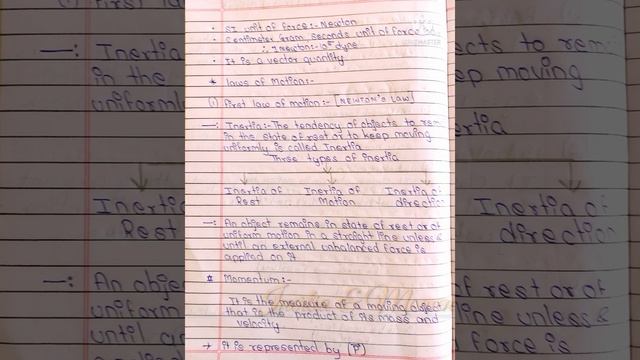 SI unit of force:- Newton
Centimeter Gram Seconds unit of force
∴ 1 Newton:- 10⁵ dyne
It is a vector quantity
* laws of Motion:-
(i) First law of motion:- [NEWTON'S LAW]
—: Inertia:- The tendency of objects to rem
in the state of rest or to keep moving
uniformly is called Inertia
Three types of inertia
Inertia of Rest
Inertia of Motion
Inertia of direction
—: An object remains in state of rest or of
uniform motion in a straight line unless &
until an external unbalanced force is
applied on it
# Momentum:-
It is the measure of a moving object
that is the product of its mass and
velocity
→ it is represented by (P)